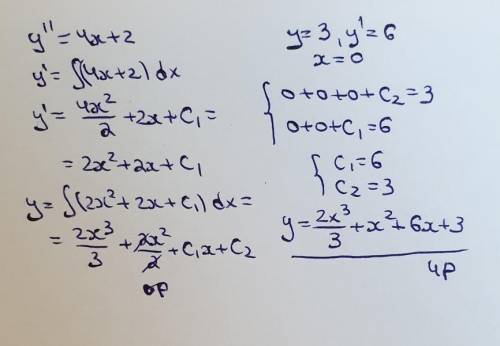 y'' = 4x + 2
y' = ∫(4x+2) dx
y' = 4x²/2 + 2x + C₁ =
= 2x² + 2x + C₁
y = ∫(2x² + 2x + C₁) dx =
= 2x³/3 + 2x²/2 + C₁x + C₂
y = 3, y' = 6
x = 0
{ 0 + 0 + 0 + C₂ = 3
0 + 0 + C₁ = 6
{ C₁ = 6
C₂ = 3
y = 2x³/3 + x² + 6x + 3
4p